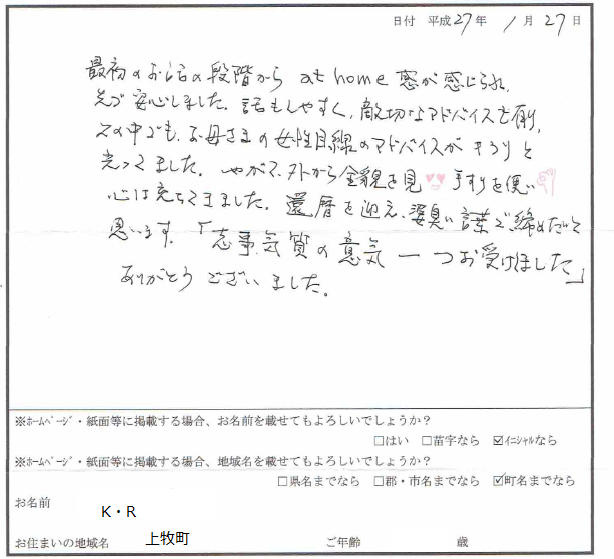 日付 平成27年 1月27日
最初のお話の段階から at home 感が感じられ、
先ず安心しました。話もしやすく、適切なアドバイスを有り、
その中でも、お母さまの女性目線のアドバイスがキラリと
光ってました。やがて、外から全貌を見 手すりを使い
心は充ちてきました。還暦を迎え、 言葉で締めたいと
思います。「 気質の意気一つお受けしました」
ありがとうございました。
※ﾎｰﾑﾍﾟｰｼﾞ・紙面等に掲載する場合、お名前を載せてもよろしいでしょうか？
□はい □苗字なら ☑ｲﾆｼｬﾙなら
※ﾎｰﾑﾍﾟｰｼﾞ・紙面等に掲載する場合、地域名を載せてもよろしいでしょうか？
□県名までなら □郡・市名までなら ☑町名までなら
お名前 K・R
お住まいの地域名 上牧町 ご年齢 歳